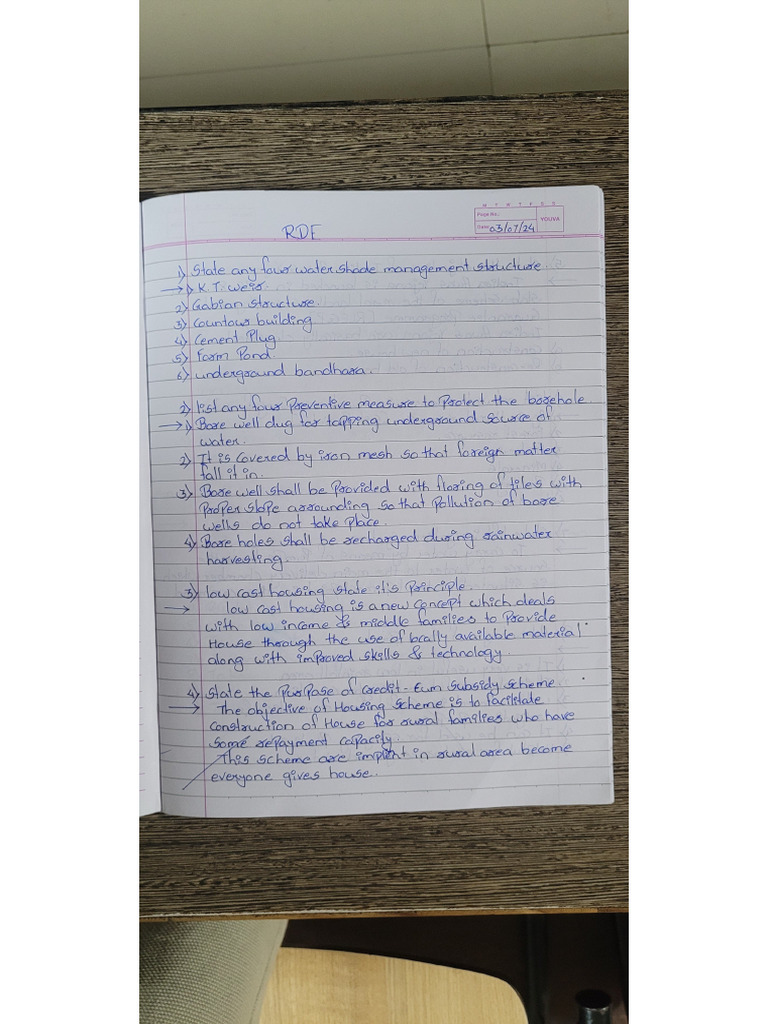 M T W T F S S
Page No.:
YOUVA
Date: 03/07/24
RDE
1) State any four water shade management structure
→ 1) K.T. weir.
2) Gabian structure.
3) Countour building
4) Cement Plug
5) Farm Pond.
6) underground bandhara.
2) list any four Preventive measure to Protect the borehole.
→ 1) Bore well dug for tapping underground source of
water.
2) It is covered by iron mesh so that foreign matter
fall it in.
3) Bore well shall be Provided with floring of tiles with
proper slope arrounding so that Pollution of bore
wells do not take Place.
4) Bore holes shall be recharged during rainwater
harvesting.
3) low cost housing state it's Principle.
→ low cost housing is a new concept which deals
with low income & middle families to Provide
House through the use of locally available material
along with improved skills & technology.
4) State the Purpose of credit-Eum Subsidy Scheme
→ The objective of Housing Scheme is to facilitate
construction of House for rural families who have
some repayment capacity
This scheme are implent in rural area become
everyone gives house.